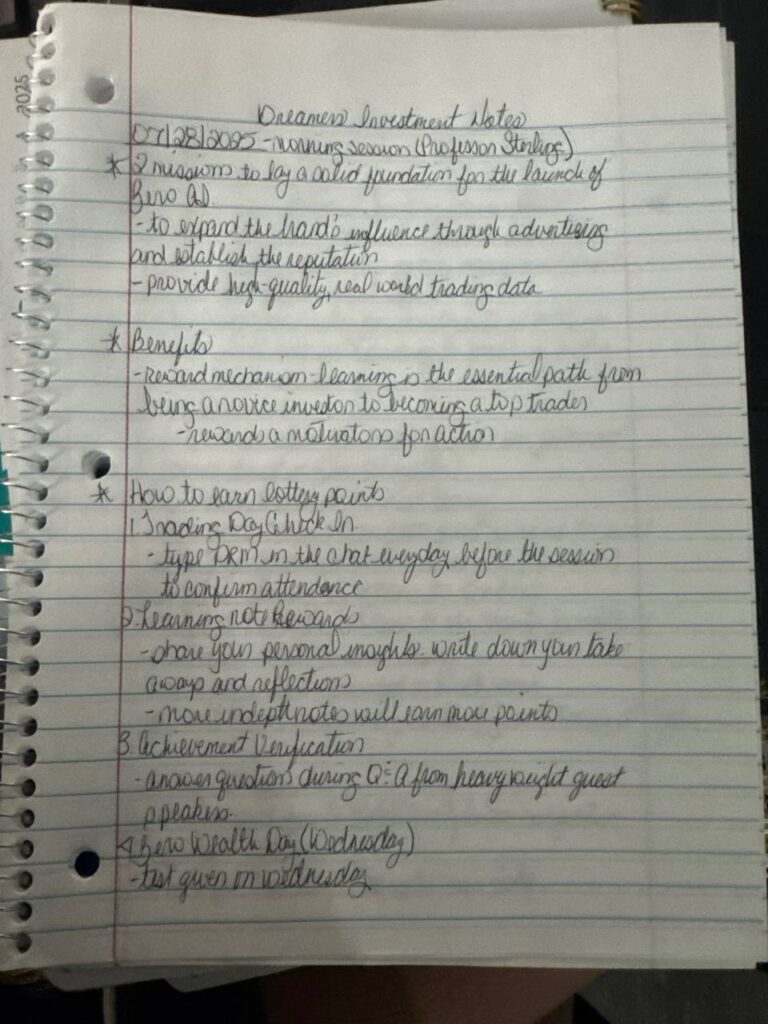 2025
Dreamers Investment Notes
07/28/2025 - morning session (Professor Sterling)
* 2 missions to lay a solid foundation for the launch of
Zero
- to expand the brand's influence through advertising
and establish the reputation
- provide high-quality, real world trading data
* Benefits
- reward mechanism - learning is the essential path from
being a novice investor to becoming a top trader
- rewards a motivators for action
* How to earn lottery points
1. Trading Day Check In
- type DRM in the chat everyday before the session
to confirm attendance
2. Learning note Rewards
- share your personal insights. write down your take
aways and reflections
- more indepth notes will earn more points
3. Achievement Verification
- answer questions during Q&A from heavy weight guest
speakers.
4. Zero Wealth Day (Wednesday)
- test given on wednesday